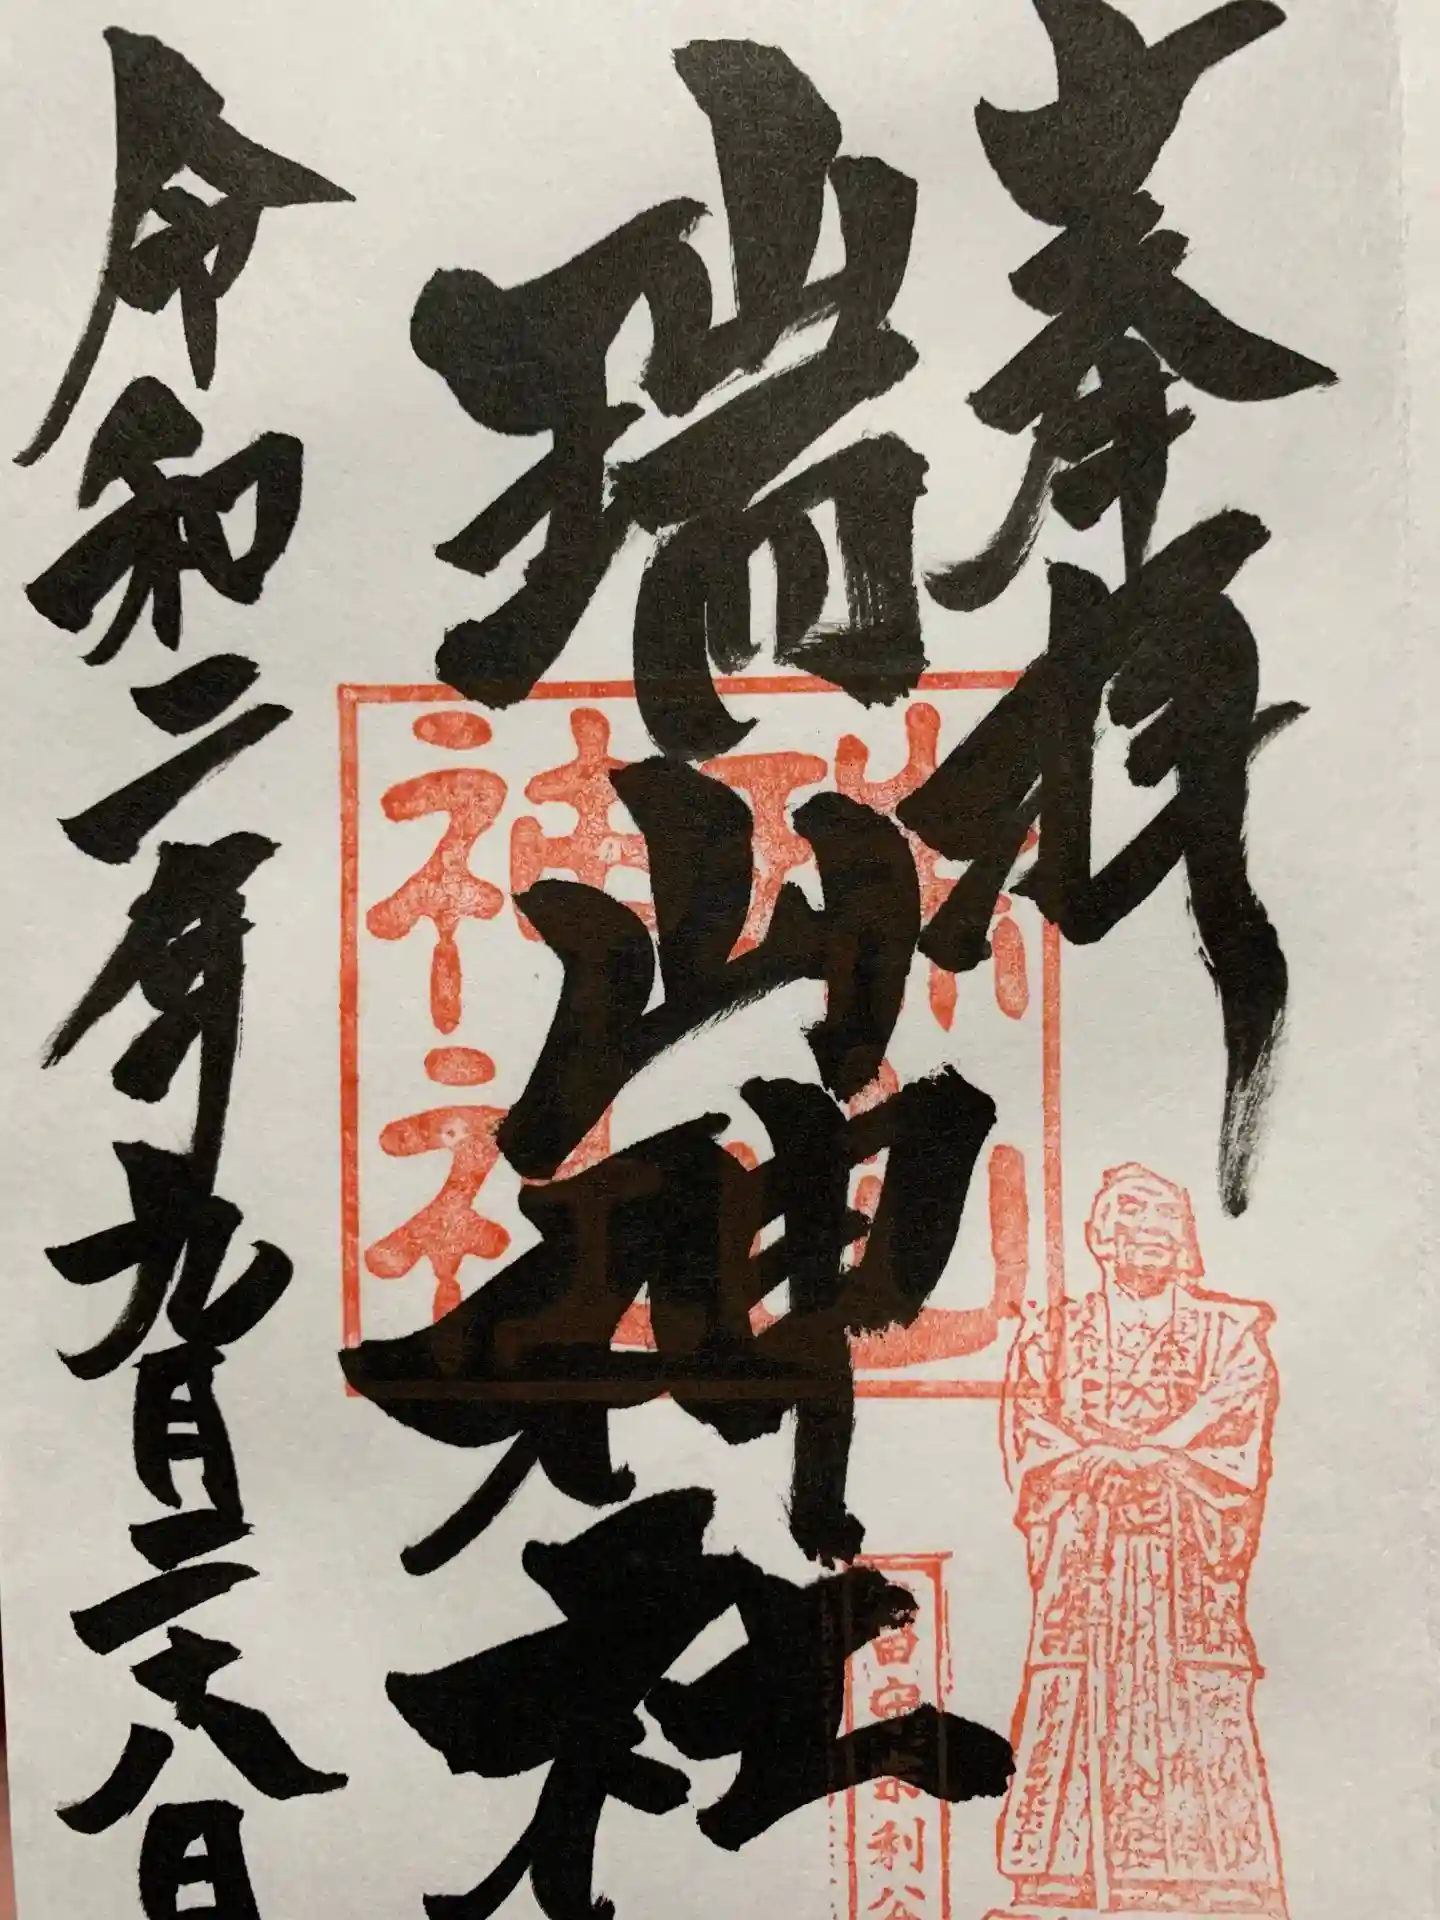 奉拝
瑞山神社
令和二年九月二十八日
瑞山
神社
田 利公